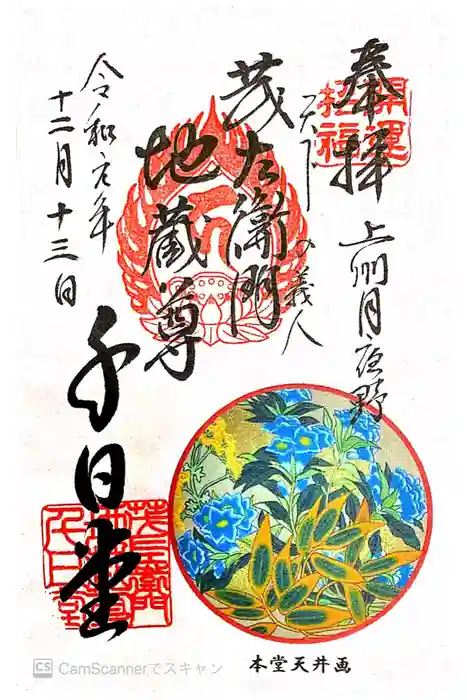 奉拝
開運
招福
上州月夜野
天下の義人
茂左衛門
地蔵尊
令和元年
十二月十三日
千日堂
本堂天井画
CS CamScannerでスキャン